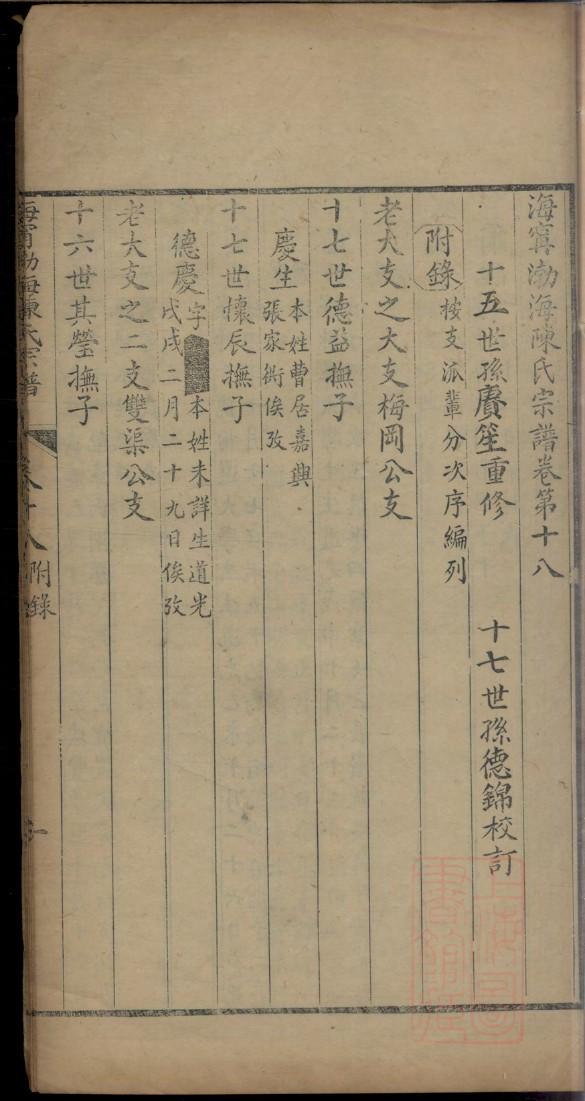 海寗渤海陳氏宗譜卷第十八
十五世孫賡笙重修 十七世孫德錦校訂
附錄 按支派輩分次序編列
老大支之大支梅岡公支
十七世德益撫子
慶生 本姓曹居嘉興
張家衖俟攷
十七世懷辰撫子
德慶 字 本姓未詳生道光
戊戌二月二十九日俟攷
老大支之二支雙渠公支
十六世其瑩撫子
海寗渤海陳氏宗譜 卷十八 附錄 一
上海圖書館藏